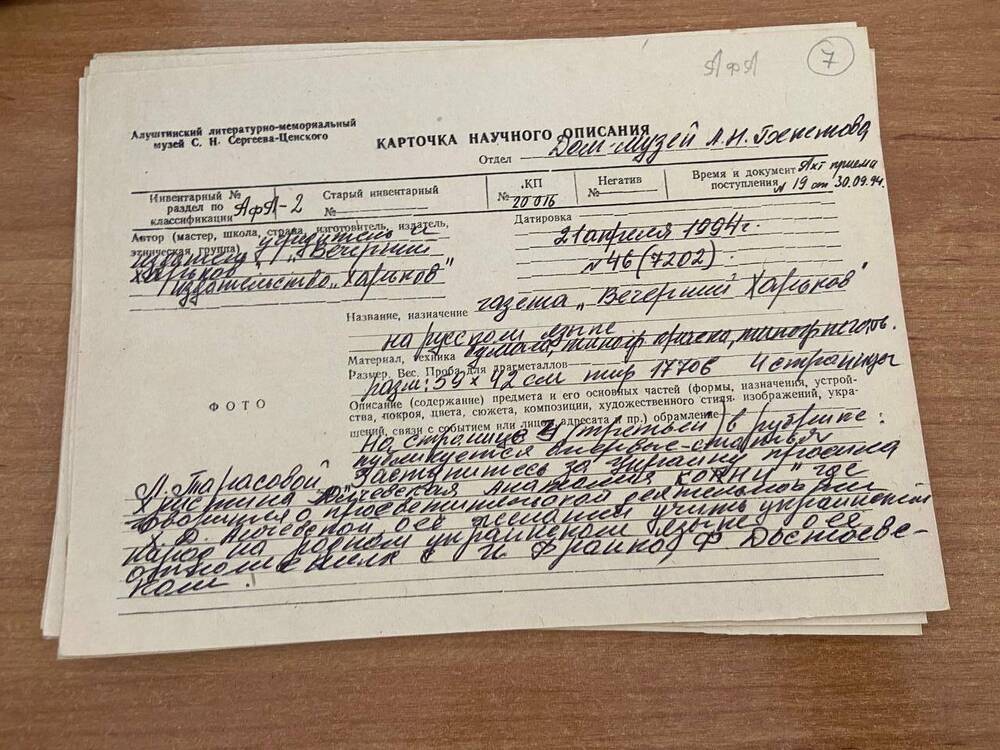 АФЛ
7
Алуштинский литературно-мемориальный
музей С. Н. Сергеева-Ценского
КАРТОЧКА НАУЧНОГО ОПИСАНИЯ
Отдел Дом-музей А.Н. Бекетова
Инвентарный №
раздел по
классификации АФЛ-2
Старый инвентарный
№
КП
№ 20016
Негатив
№
Время и документ Акт приема
поступления № 19 от 30.09.94.
Автор (мастер, школа, страна, изготовитель, издатель,
этническая группа) учредитель и
издатель "Вечерний
Харьков"
Издательство "Харьков"
Датировка
21 апреля 1994г.
№ 46 (7202).
Название, назначение газета "Вечерний Харьков"
на русском языке
Материал, техника бумага, типогр краска, типогр печать.
Размер. Вес. Проба для драгметаллов
разм: 59 × 42 см тир 17706 4 страницы
ФОТО
Описание (содержание) предмета и его основных частей (формы, назначения, устрой-
ства, покроя, цвета, сюжета, композиции, художественного стиля изображений, укра-
шений, связи с событием или лицом, адресата и пр.) обрамление
На странице 3 (третьей) в рубрике:
публикуется впервые статья
Л. Тарасовой "Заступитесь за Украину просила
Христина Алчевская Анатолия Кони" где
говорится о просветительской деятельности
Х. Д. Алчевской о её желании учить украинский
народ на родном украинском языке, о ее
отношениях с И Франко, Ф. Достоевс-
ким.